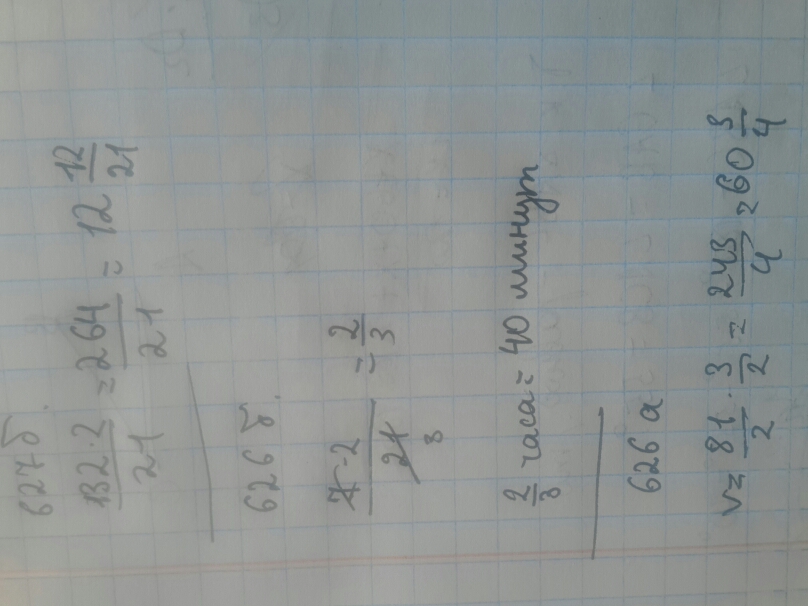 627б.
132·2/21 = 264/21 = 12 12/21
626б.
7·2/21 = 2/3
3
2/3 часа = 40 минут
626а
v= 81/2 · 3/2 = 243/4 = 60 3/4